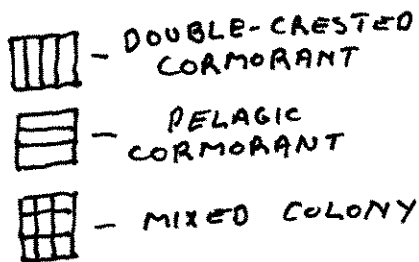 - DOUBLE-CRESTED
CORMORANT
- PELAGIC
CORMORANT
- MIXED COLONY